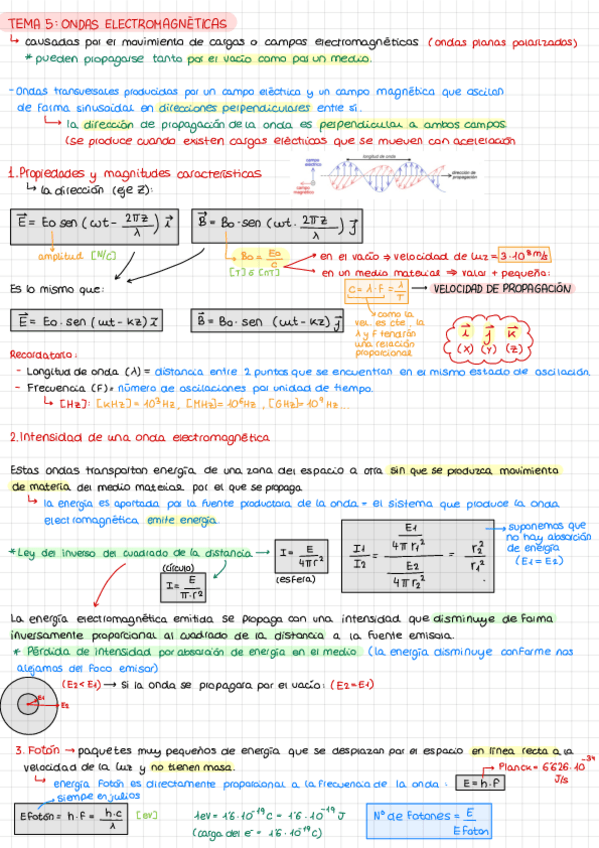 TEMA 5: ONDAS ELECTROMAGNÉTICAS
↳ causadas por el movimiento de cargas o campos electromagnéticas (ondas planas polarizadas)
* pueden propagarse tanto por el vacío como por un medio.
- Ondas transversales producidas por un campo eléctrica y un campo magnética que oscilan
de forma sinusoidal en direcciones perpendiculares entre sí.
↳ la dirección de propagación de la onda es perpendicular a ambos campos
(se produce cuando existen cargas eléctricas que se mueven con aceleración
1. Propiedades y magnitudes características
↳ la dirección (eje z):
campo eléctrico
longitud de onda
dirección de propagación
campo magnético
E⃗ = Eo sen (ωt - 2πz/λ) i⃗
B⃗ = Bo · sen (ωt · 2πz/λ) j⃗
amplitud [N/C]
Bo = Eo/c
[T] ó [nT]
→ en el vacío ⇒ velocidad de luz = 3·10⁸ m/s
→ en un medio material ⇒ valor + pequeño:
Es lo mismo que:
c = λ·F = λ/T → VELOCIDAD DE PROPAGACIÓN
E⃗ = Eo · sen (ωt - kz) i⃗
B⃗ = Bo · sen (ωt - kz) j⃗
como la
vel. es cte, la
λ y F tendrán
una relación
proporcional
i⃗ j⃗ k⃗
(X) (Y) (Z)
Recordatorio:
- Longitud de onda (λ) = distancia entre 2 puntos que se encuentran en el mismo estado de oscilación.
- Frecuencia (F) = número de oscilaciones por unidad de tiempo.
↳ [Hz]: [KHz] = 10³ Hz, [MHz] = 10⁶ Hz, [GHz] = 10⁹ Hz...
2. Intensidad de una onda electromagnética
Estas ondas transportan energía de una zona del espacio a otra sin que se produzca movimiento
de materia del medio material por el que se propaga
↳ la energía es aportada por la fuente productora de la onda = el sistema que produce la onda
electromagnética emite energía.
* Ley del inverso del cuadrado de la distancia → I = E/4πr²
(esfera)
(círculo)
I = E/π·r²
I1/I2 = (E1/4πr1²)/(E2/4πr2²) = r2²/r1²
→ suponemos que
no hay absorción
de energía
(E1 = E2)
La energía electromagnética emitida se propaga con una intensidad que disminuye de forma
inversamente proporcional al cuadrado de la distancia a la fuente emisora.
* Pérdida de intensidad por absorción de energía en el medio (la energía disminuye conforme nos
alejamos del foco emisor)
E1
E2
(E2 < E1) → Si la onda se propagara por el vacío: (E2 = E1)
3. Fotón → paquetes muy pequeños de energía que se desplazan por el espacio en línea recta a la
velocidad de la luz y no tienen masa.
→ Planck = 6'626·10⁻³⁴
J/s
↳ energía fotón es directamente proporcional a la frecuencia de la onda: E = h·F
siempre en julios
E fotón = h·F = h·c/λ [eV]
1eV = 1'6·10⁻¹⁹ C = 1'6·10⁻¹⁹ J
(carga del e⁻ = 1'6·10⁻¹⁹ C)
Nº de fotones = E/E foton